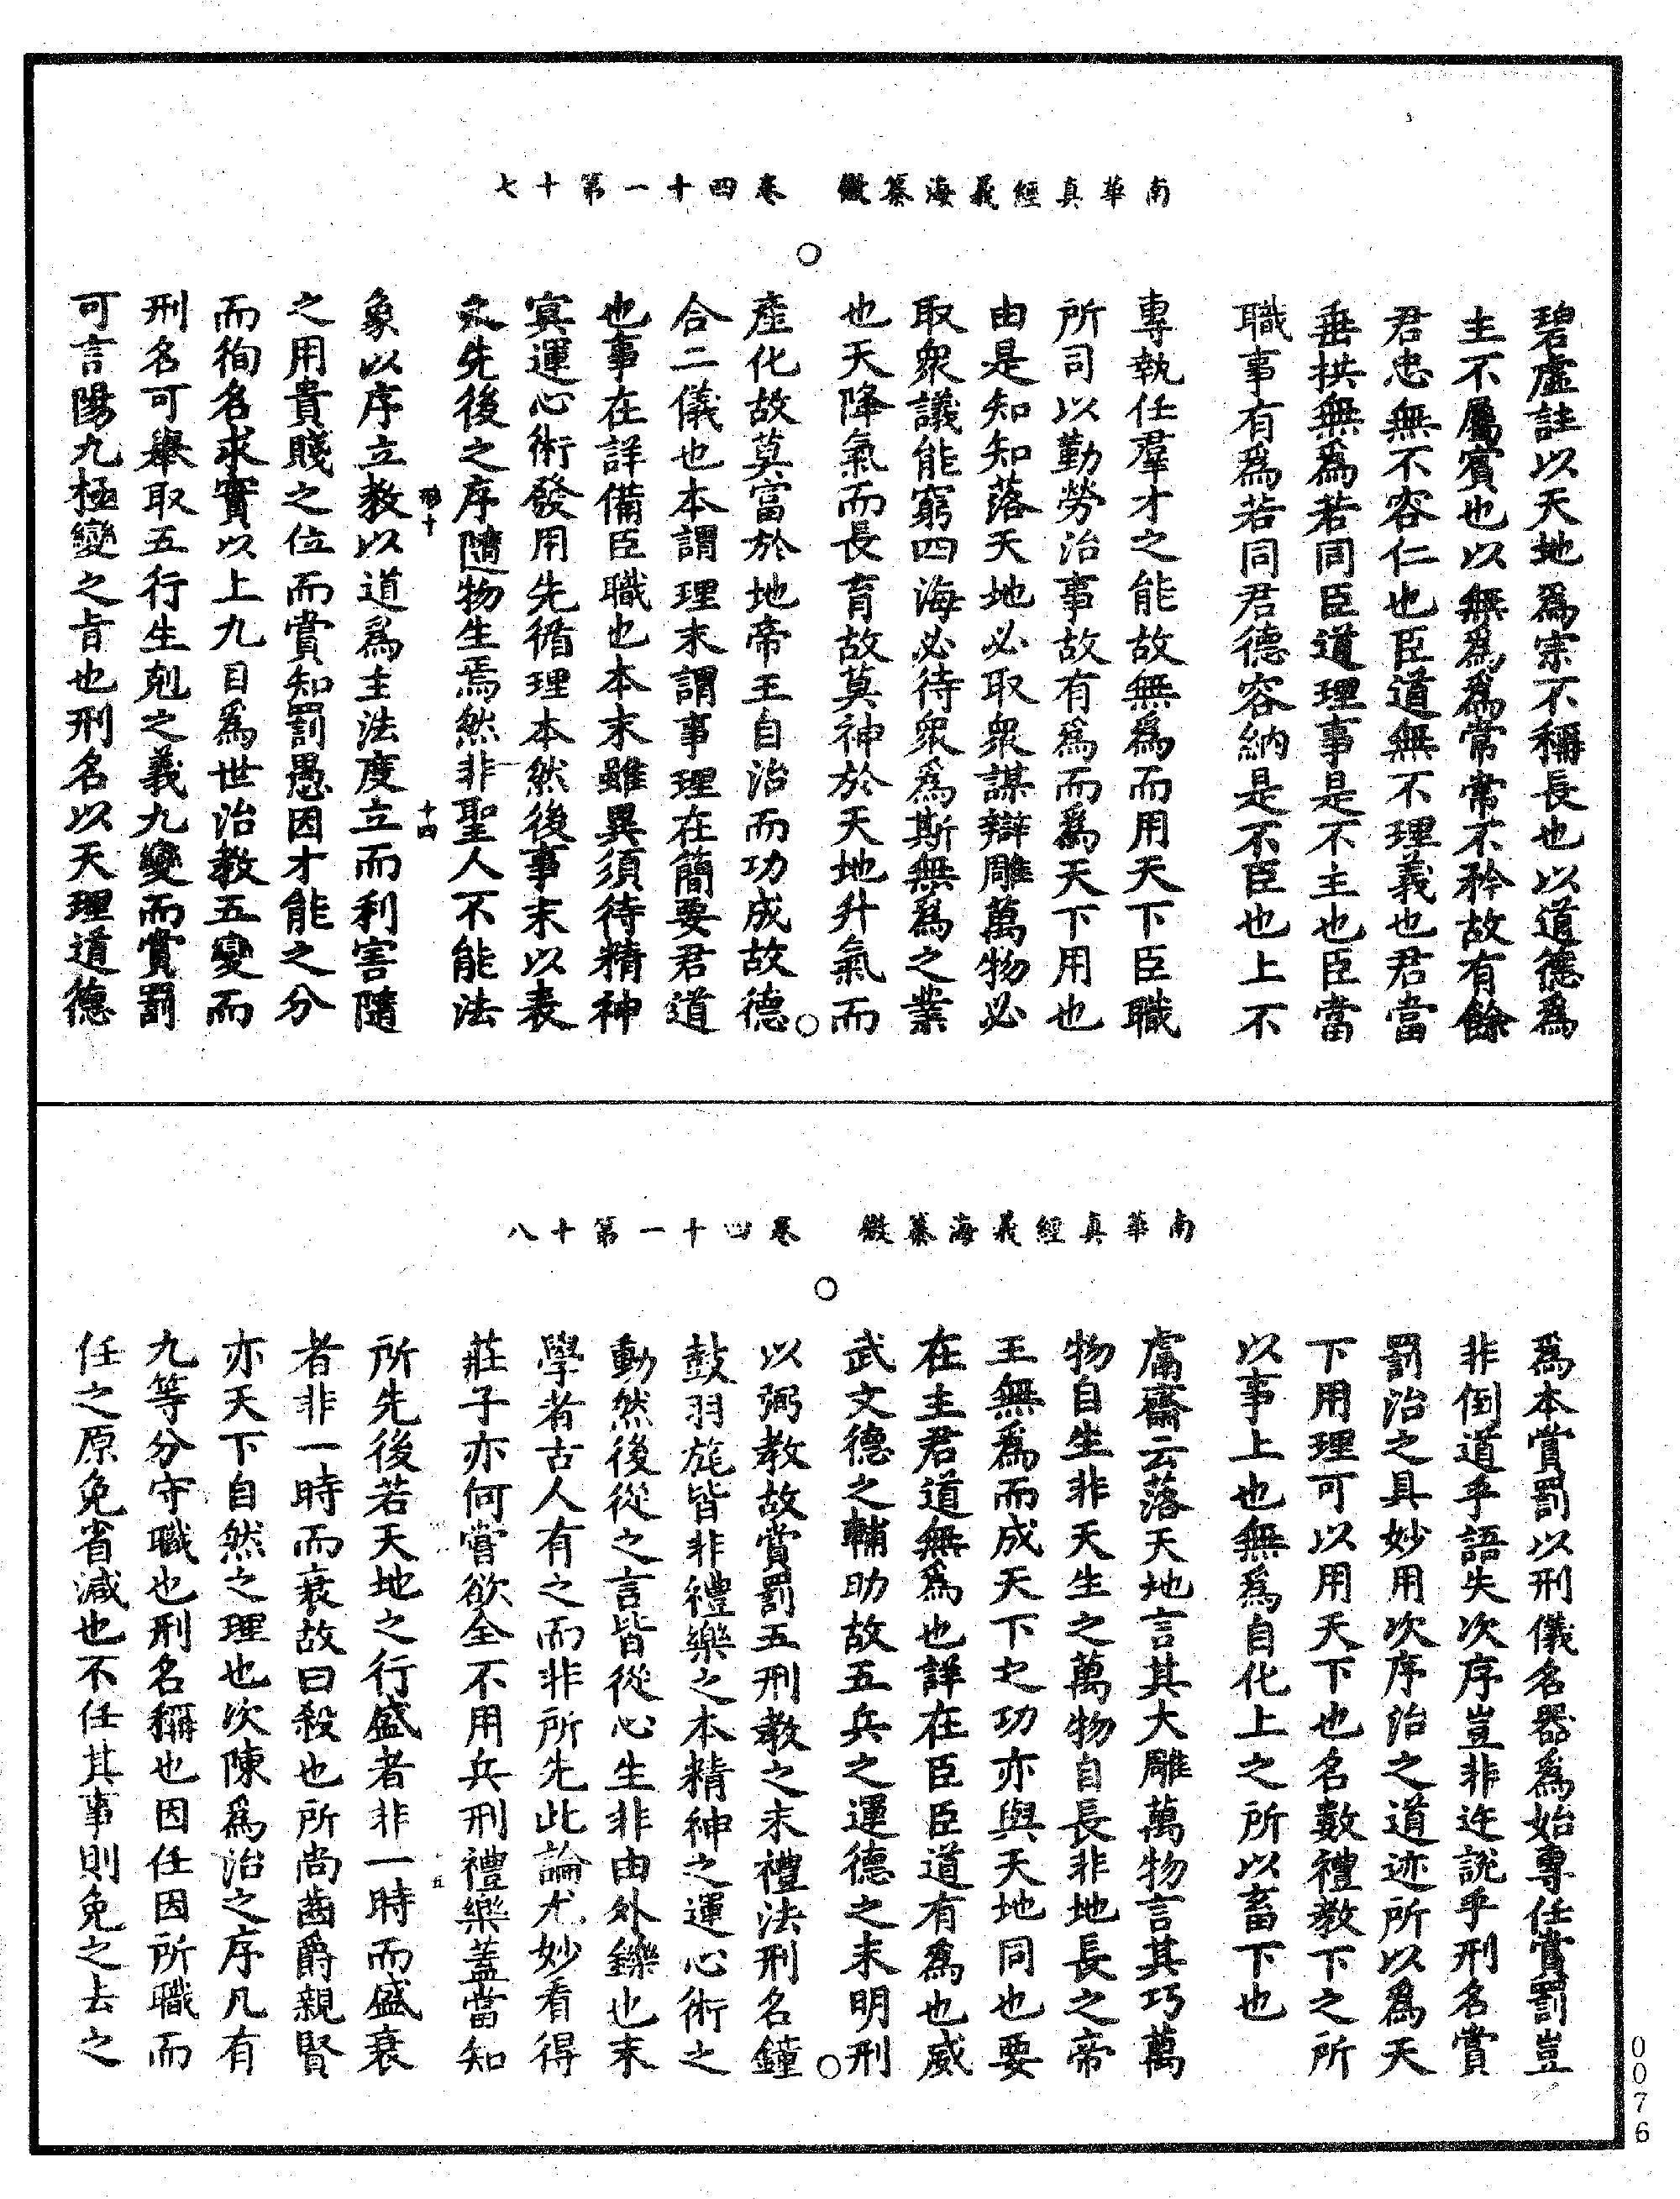 南華真經義海纂微 卷四十一第十七
碧虛註以天地爲宗不稱長也以道德爲
主不屬賓也以無爲爲常常不矜故有餘
君忠無不容仁也臣道無不理義也君當
垂拱無爲若同臣道理事是不主也臣當
職事有爲若同君德容納是不臣也上不
專執任羣才之能故無爲而用天下臣職
所司以勤勞治事故有爲而爲天下用也
由是知知落天地必取衆謀辯雕萬物必
取衆議能窮四海必待衆爲斯無爲之業
也天降氣而長育故莫神於天地升氣而
產化故莫富於地帝王自治而功成故德
合二儀也本謂理末謂事理在簡要君道
也事在詳備臣職也本末雖異須待精神
寞運心術發用先循理本然後事末以表
夂先後之序隨物生焉然非聖人不能法
象以序立教以道爲主法度立而利害隨
之用貴賤之位而賞知罰愚因才能之分
而徇名求實以上九目爲世治教五變而
刑名可舉取五行生剋之義九變而賞罰
可言陽九極變之旨也刑名以天理道德
十四
南華真經義海纂微 卷四十一第十八
爲本賞罰以刑儀名器爲始專任賞罰豈
非倒道乎語失次序豈非迕說乎刑名賞
罰治之具妙用次序治之道迹所以爲天
下用理可以用天下也名數禮教下之所
以事上也無爲自化上之所以畜下也
鬳齋云落天地言其大雕萬物言其巧萬
物自生非天生之萬物自長非地長之帝
王無爲而成天下之功亦與天地同也要
在主君道無爲也詳在臣臣道有爲也威
武文德之輔助故五兵之運德之末明刑
以弼教故賞罰五刑教之末禮法刑名鐘
鼓羽旄皆非禮樂之本精神之運心術之
動然後從之言皆從心生非由外鑠也末
學者古人有之而非所先此論尤妙看得
莊子亦何嘗欲全不用兵刑禮樂蓋當知
所先後若天地之行盛者非一時而盛衰
者非一時而衰故曰殺也所尚齒爵親賢
亦天下自然之理也次陳爲治之序凡有
九等分守職也刑名稱也因任因所職而
任之原免省減也不任其事則免之去之
五
0076